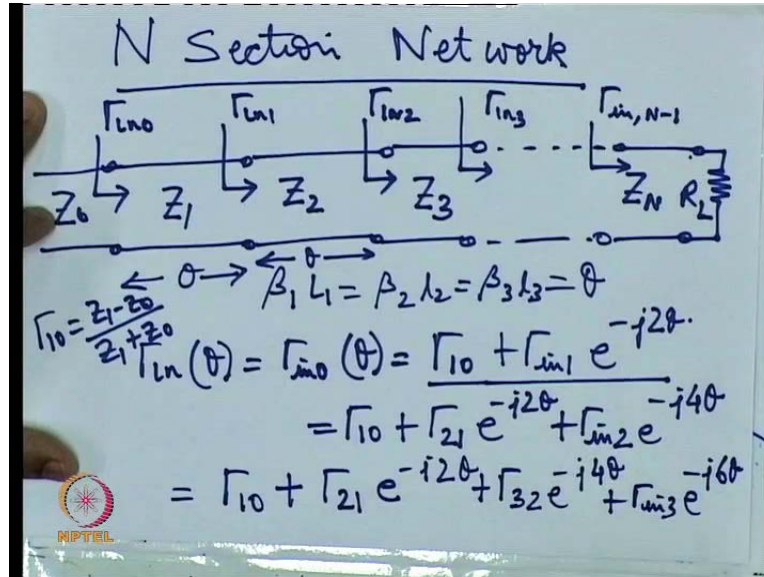 N Section Network
Γin0 Γin1 Γin2 Γin3 Γin,N-1
Z0 Z1 Z2 Z3 ZN RL
θ θ β1 l1 = β2 l2 = β3 l3 = θ
Γ10 = Z1-Z0 / Z1+Z0
Γin (θ) = Γin0 (θ) = Γ10 + Γin1 e^-j2θ.
= Γ10 + Γ21 e^-j2θ + Γin2 e^-j4θ
= Γ10 + Γ21 e^-j2θ + Γ32 e^-j4θ + Γin3 e^-j6θ
NPTEL